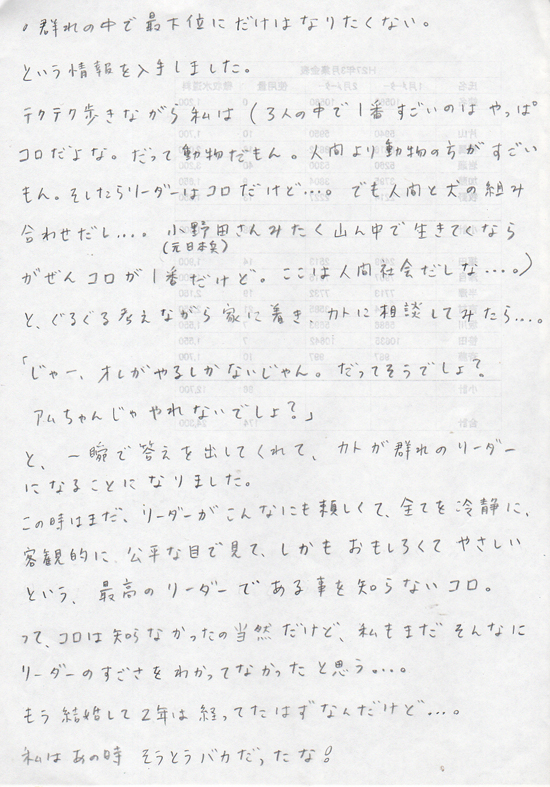 ・群れの中で最下位にだけはなりたくない。
という情報を入手しました。
テクテク歩きながら私は(3人の中で1番すごいのはやっぱ
コロだよな。だって動物だもん。人間より動物の方がすごい
もん。そしたらリーダーはコロだけど…。でも人間と犬の組み
合わせだし…。小野田さんみたく山ん中で生きてくなら
(元日本兵)
がぜんコロが1番だけど。ここは人間社会だしな…。)
と、ぐるぐる考えながら家に着き、カトに相談してみたら…。
「じゃー、オレがやるしかないじゃん。だってそうでしょ?
アムちゃんじゃやれないでしょ?」
と、一瞬で答えを出してくれて、カトが群れのリーダー
になることになりました。
この時はまだ、リーダーがこんなにも頼しくて、全てを冷静に、
客観的に、公平な目で見て、しかもおもしろくてやさしい
という、最高のリーダーである事を知らないコロ。
って、コロは知らなかったの当然だけど、私もまだそんなに
リーダーのすごさをわかってなかったと思う…。
もう結婚して2年は経ってたはずなんだけど…。
私はあの時そうとうバカだったな!